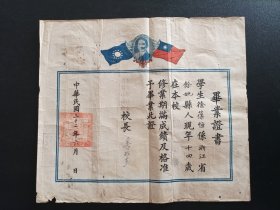 畢業證書
學生徐蓀份係浙江省
餘姚縣人現年十四歲
在本校
修業期滿成績及格准
予畢業此證
校長
中華民國三十 年 月 日